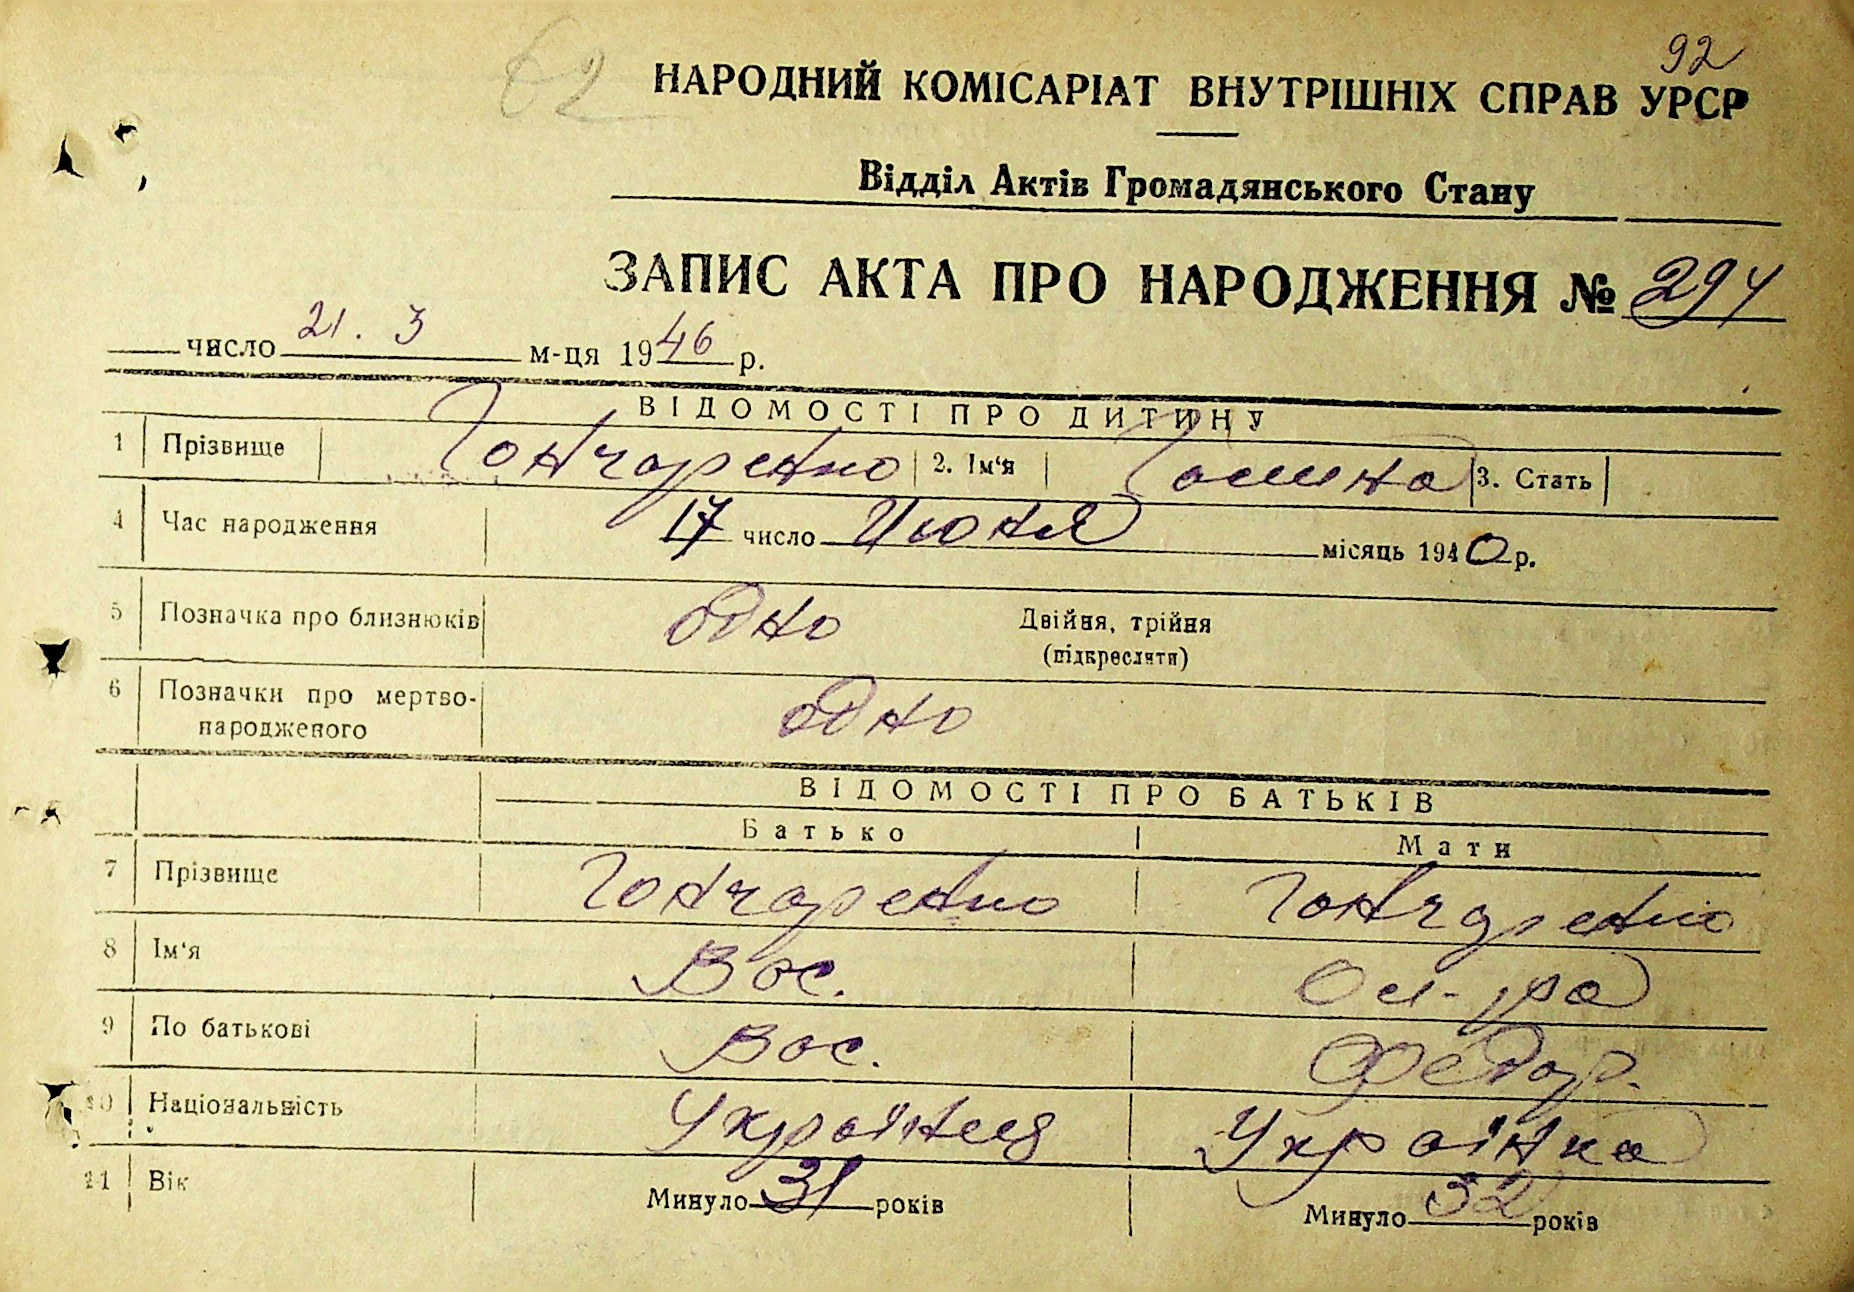 62
92
НАРОДНИЙ КОМІСАРІАТ ВНУТРІШНІХ СПРАВ УРСР
Відділ Актів Громадянського Стану
ЗАПИС АКТА ПРО НАРОДЖЕННЯ № 294
число 21. 3 м-ця 1946 р.
ВІДОМОСТІ ПРО ДИТИНУ
1 Прізвище Гончаренко 2. Ім‘я 3. Стать
4 Час народження 17 число Июня місяць 1940 р.
5 Позначка про близнюків одно Двійня, трійня
(підкреслити)
6 Позначки про мертво-
народженого одно
ВІДОМОСТІ ПРО БАТЬКІВ
Батько Мати
7 Прізвище Гончаренко Гончаренко
8 Ім‘я Вас.
9 По батькові Вас. Федор.
10 Національність Українця Українка
11 Вік Минуло 31 років Минуло 32 років